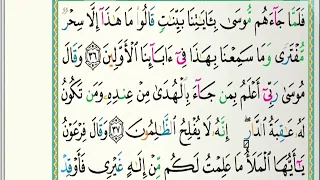 فَلَمَّا جَآءَهُم مُّوسَىٰ بِـَٔايَٰتِنَا بَيِّنَٰتٍ قَالُوا۟ مَا هَٰذَآ إِلَّا سِحْرٌ
مُّفْتَرًى وَمَا سَمِعْنَا بِهَٰذَا فِىٓ ءَابَآئِنَا ٱلْأَوَّلِينَ ٣٦ وَقَالَ
مُوسَىٰ رَبِّىٓ أَعْلَمُ بِمَن جَآءَ بِٱلْهُدَىٰ مِنْ عِندِهِۦ وَمَن تَكُونُ
لَهُۥ عَٰقِبَةُ ٱلدَّارِ ۖ إِنَّهُۥ لَا يُفْلِحُ ٱلظَّٰلِمُونَ ٣٧ وَقَالَ فِرْعَوْنُ
يَٰٓأَيُّهَا ٱلْمَلَأُ مَا عَلِمْتُ لَكُم مِّنْ إِلَٰهٍ غَيْرِى فَأَوْقِدْ